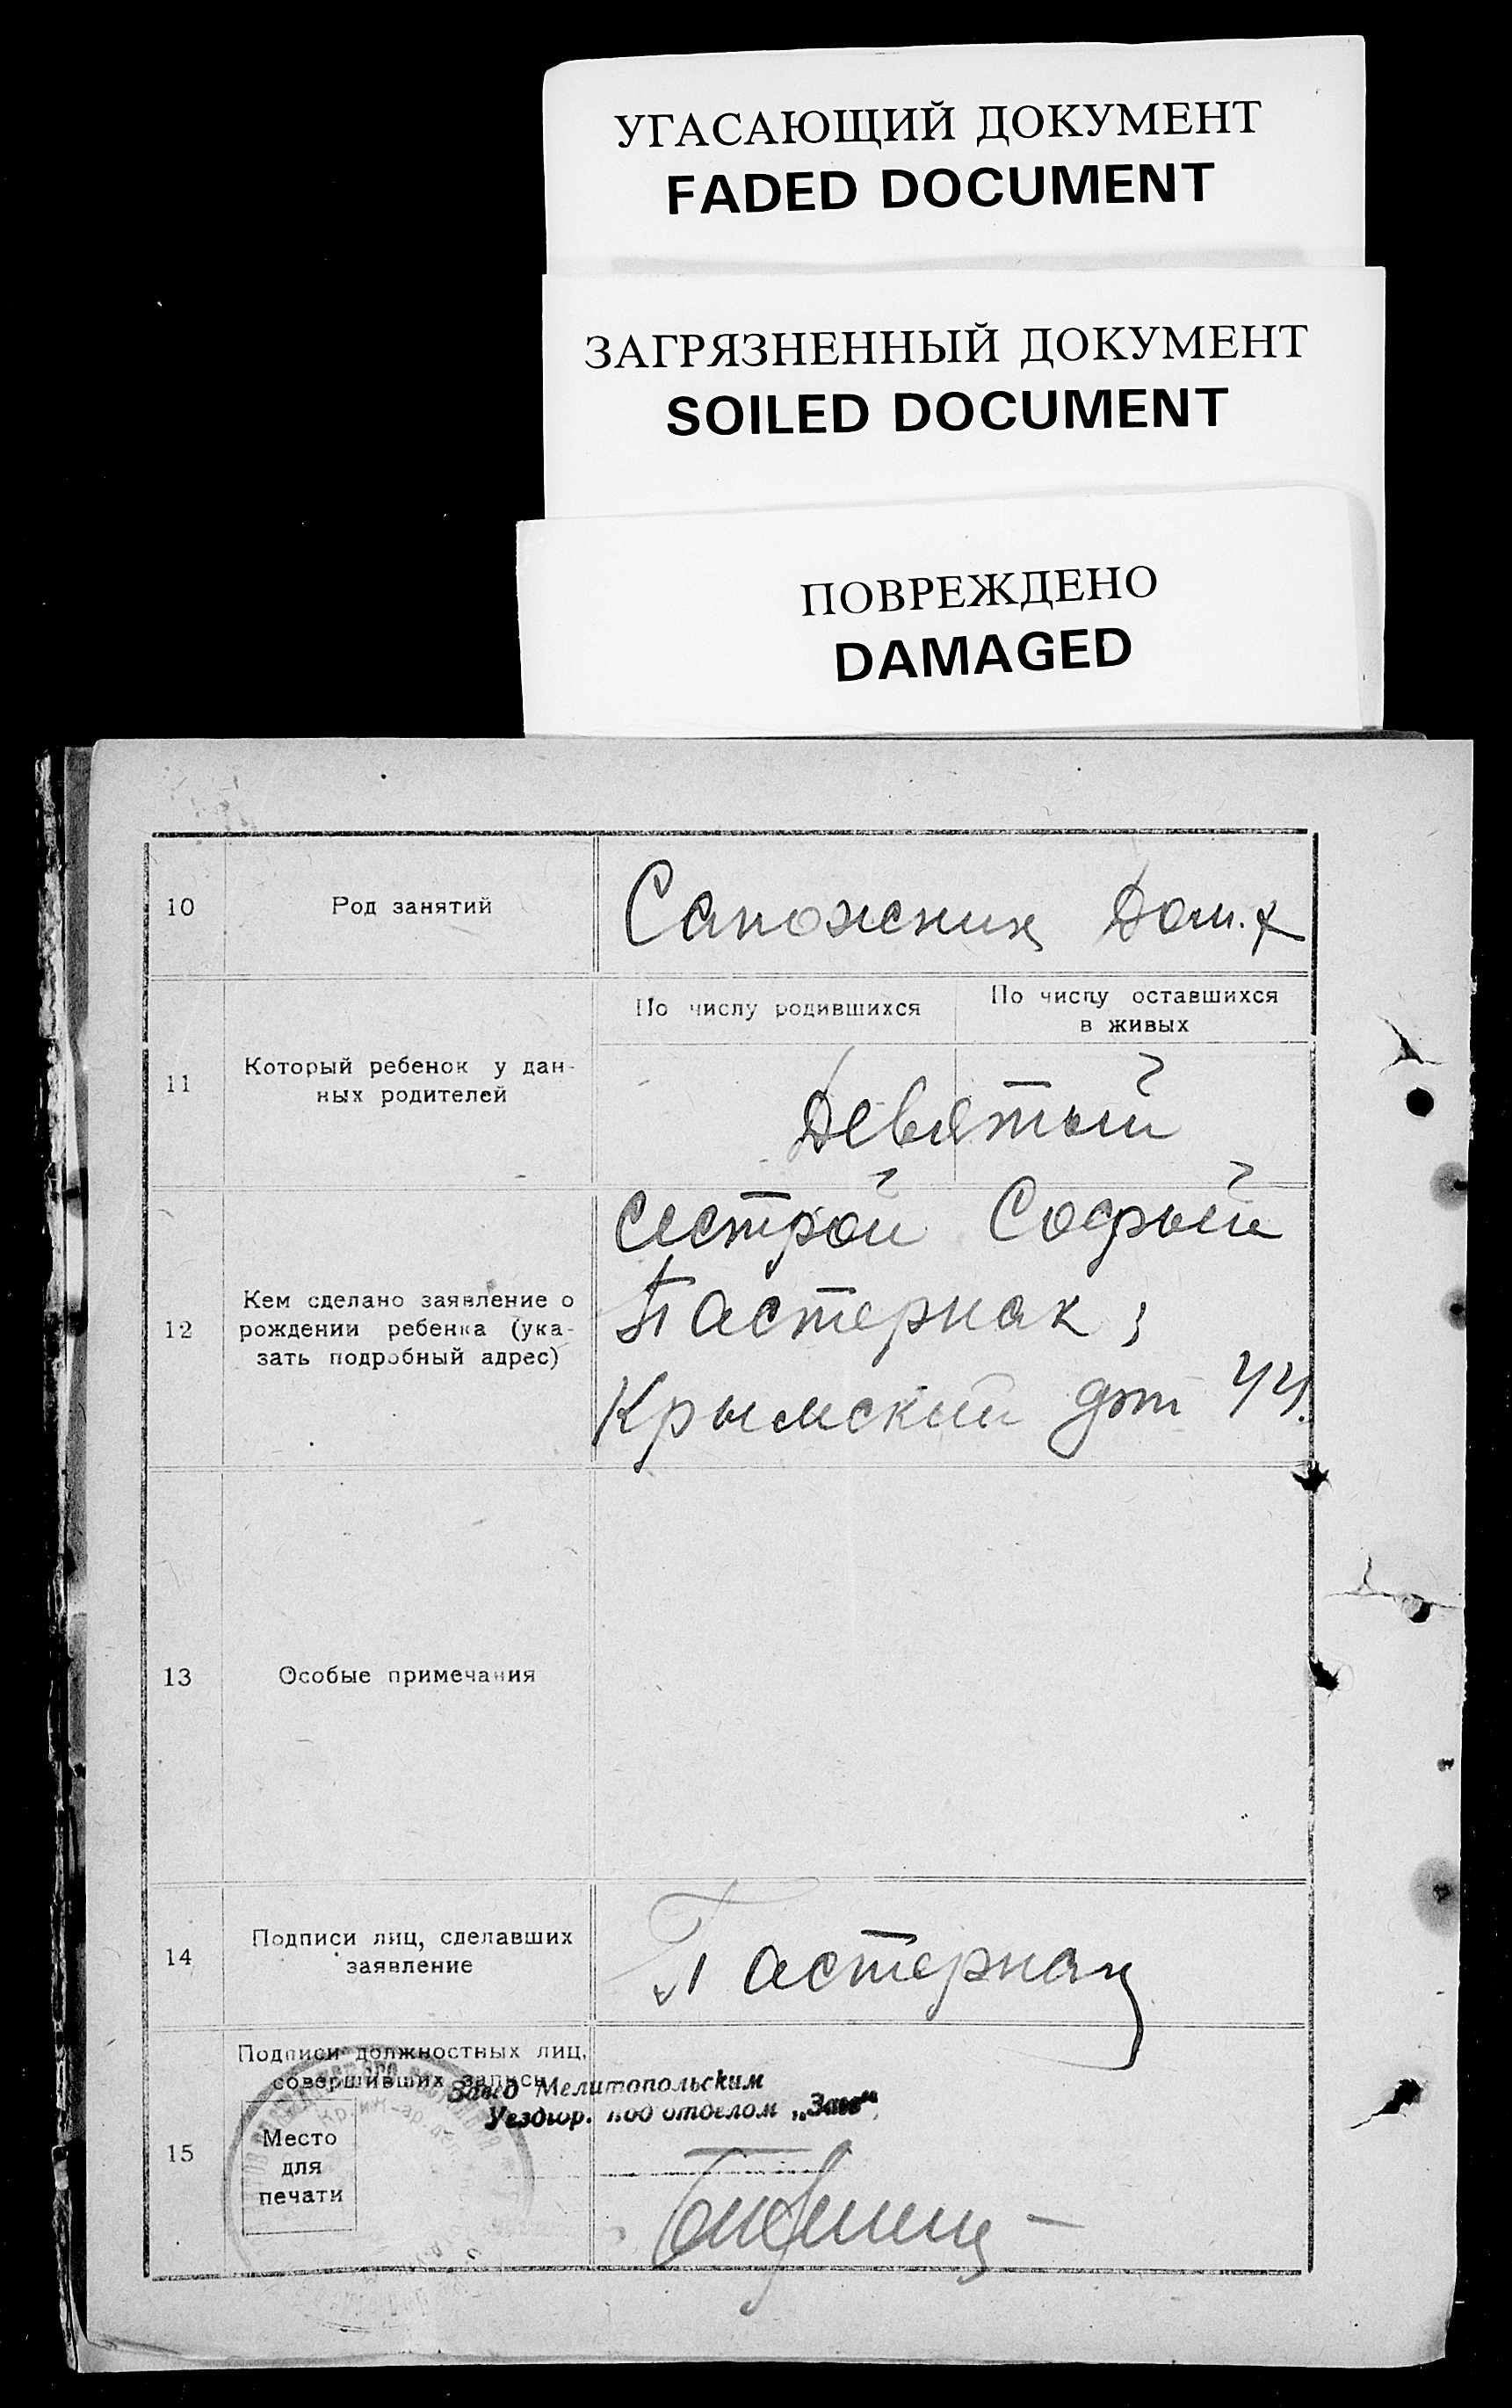 УГАСАЮЩИЙ ДОКУМЕНТ
FADED DOCUMENT
ЗАГРЯЗНЕННЫЙ ДОКУМЕНТ
SOILED DOCUMENT
ПОВРЕЖДЕНО
DAMAGED
10
Род занятий
Сапожник Дом. х
11
Который ребенок у дан-
ных родителей
По числу родившихся
По числу оставшихся
в живых
Девятый
12
Кем сделано заявление о
рождении ребенка (ука-
зать подробный адрес)
сестрой Софьей
Пастернак,
Крымский 44.
13
Особые примечания
14
Подписи лиц, сделавших
заявление
Пастернак
15
Подписи должностных лиц,
совершивших запись
Завед Мелитопольским
Уездгор. под отделом „Загс“
Место
для
печати